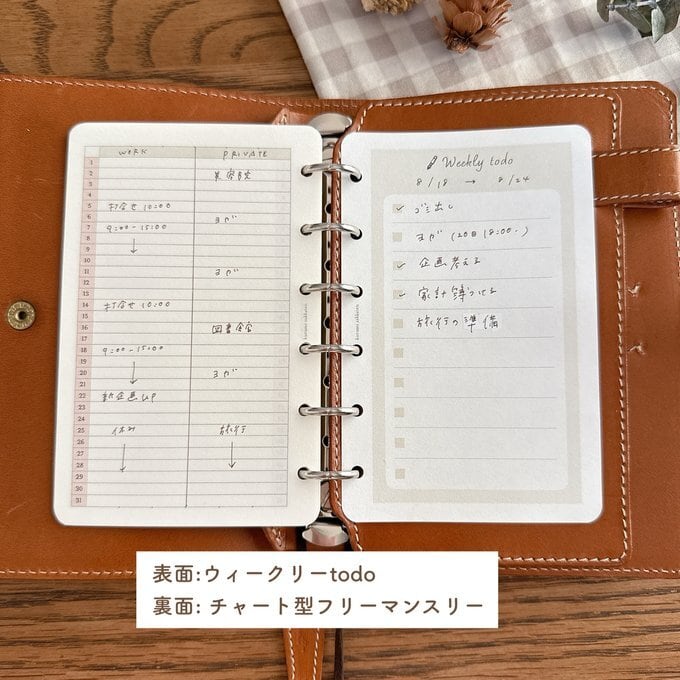 WORK PRIVATE
1
2 美容院
3
4
5 打合せ 10:00
6 ヨガ
7 9:00-15:00
8
9 ↓
10
11 ヨガ
12
13
14 打合せ 10:00
15
16 図書館
17
18 9:00-15:00
19
20 ↓ ヨガ
21
22 新企画UP
23
24
25 休み 旅行
26
27
28 ↓ ↓
29
30
31
Weekly todo
8/18 → 8/24
✓ ゴミ出し
ヨガ (20日 18:00-)
✓ 企画考える
✓ 家計簿つける
旅行の準備
表面:ウィークリーtodo
裏面: チャート型フリーマンスリー